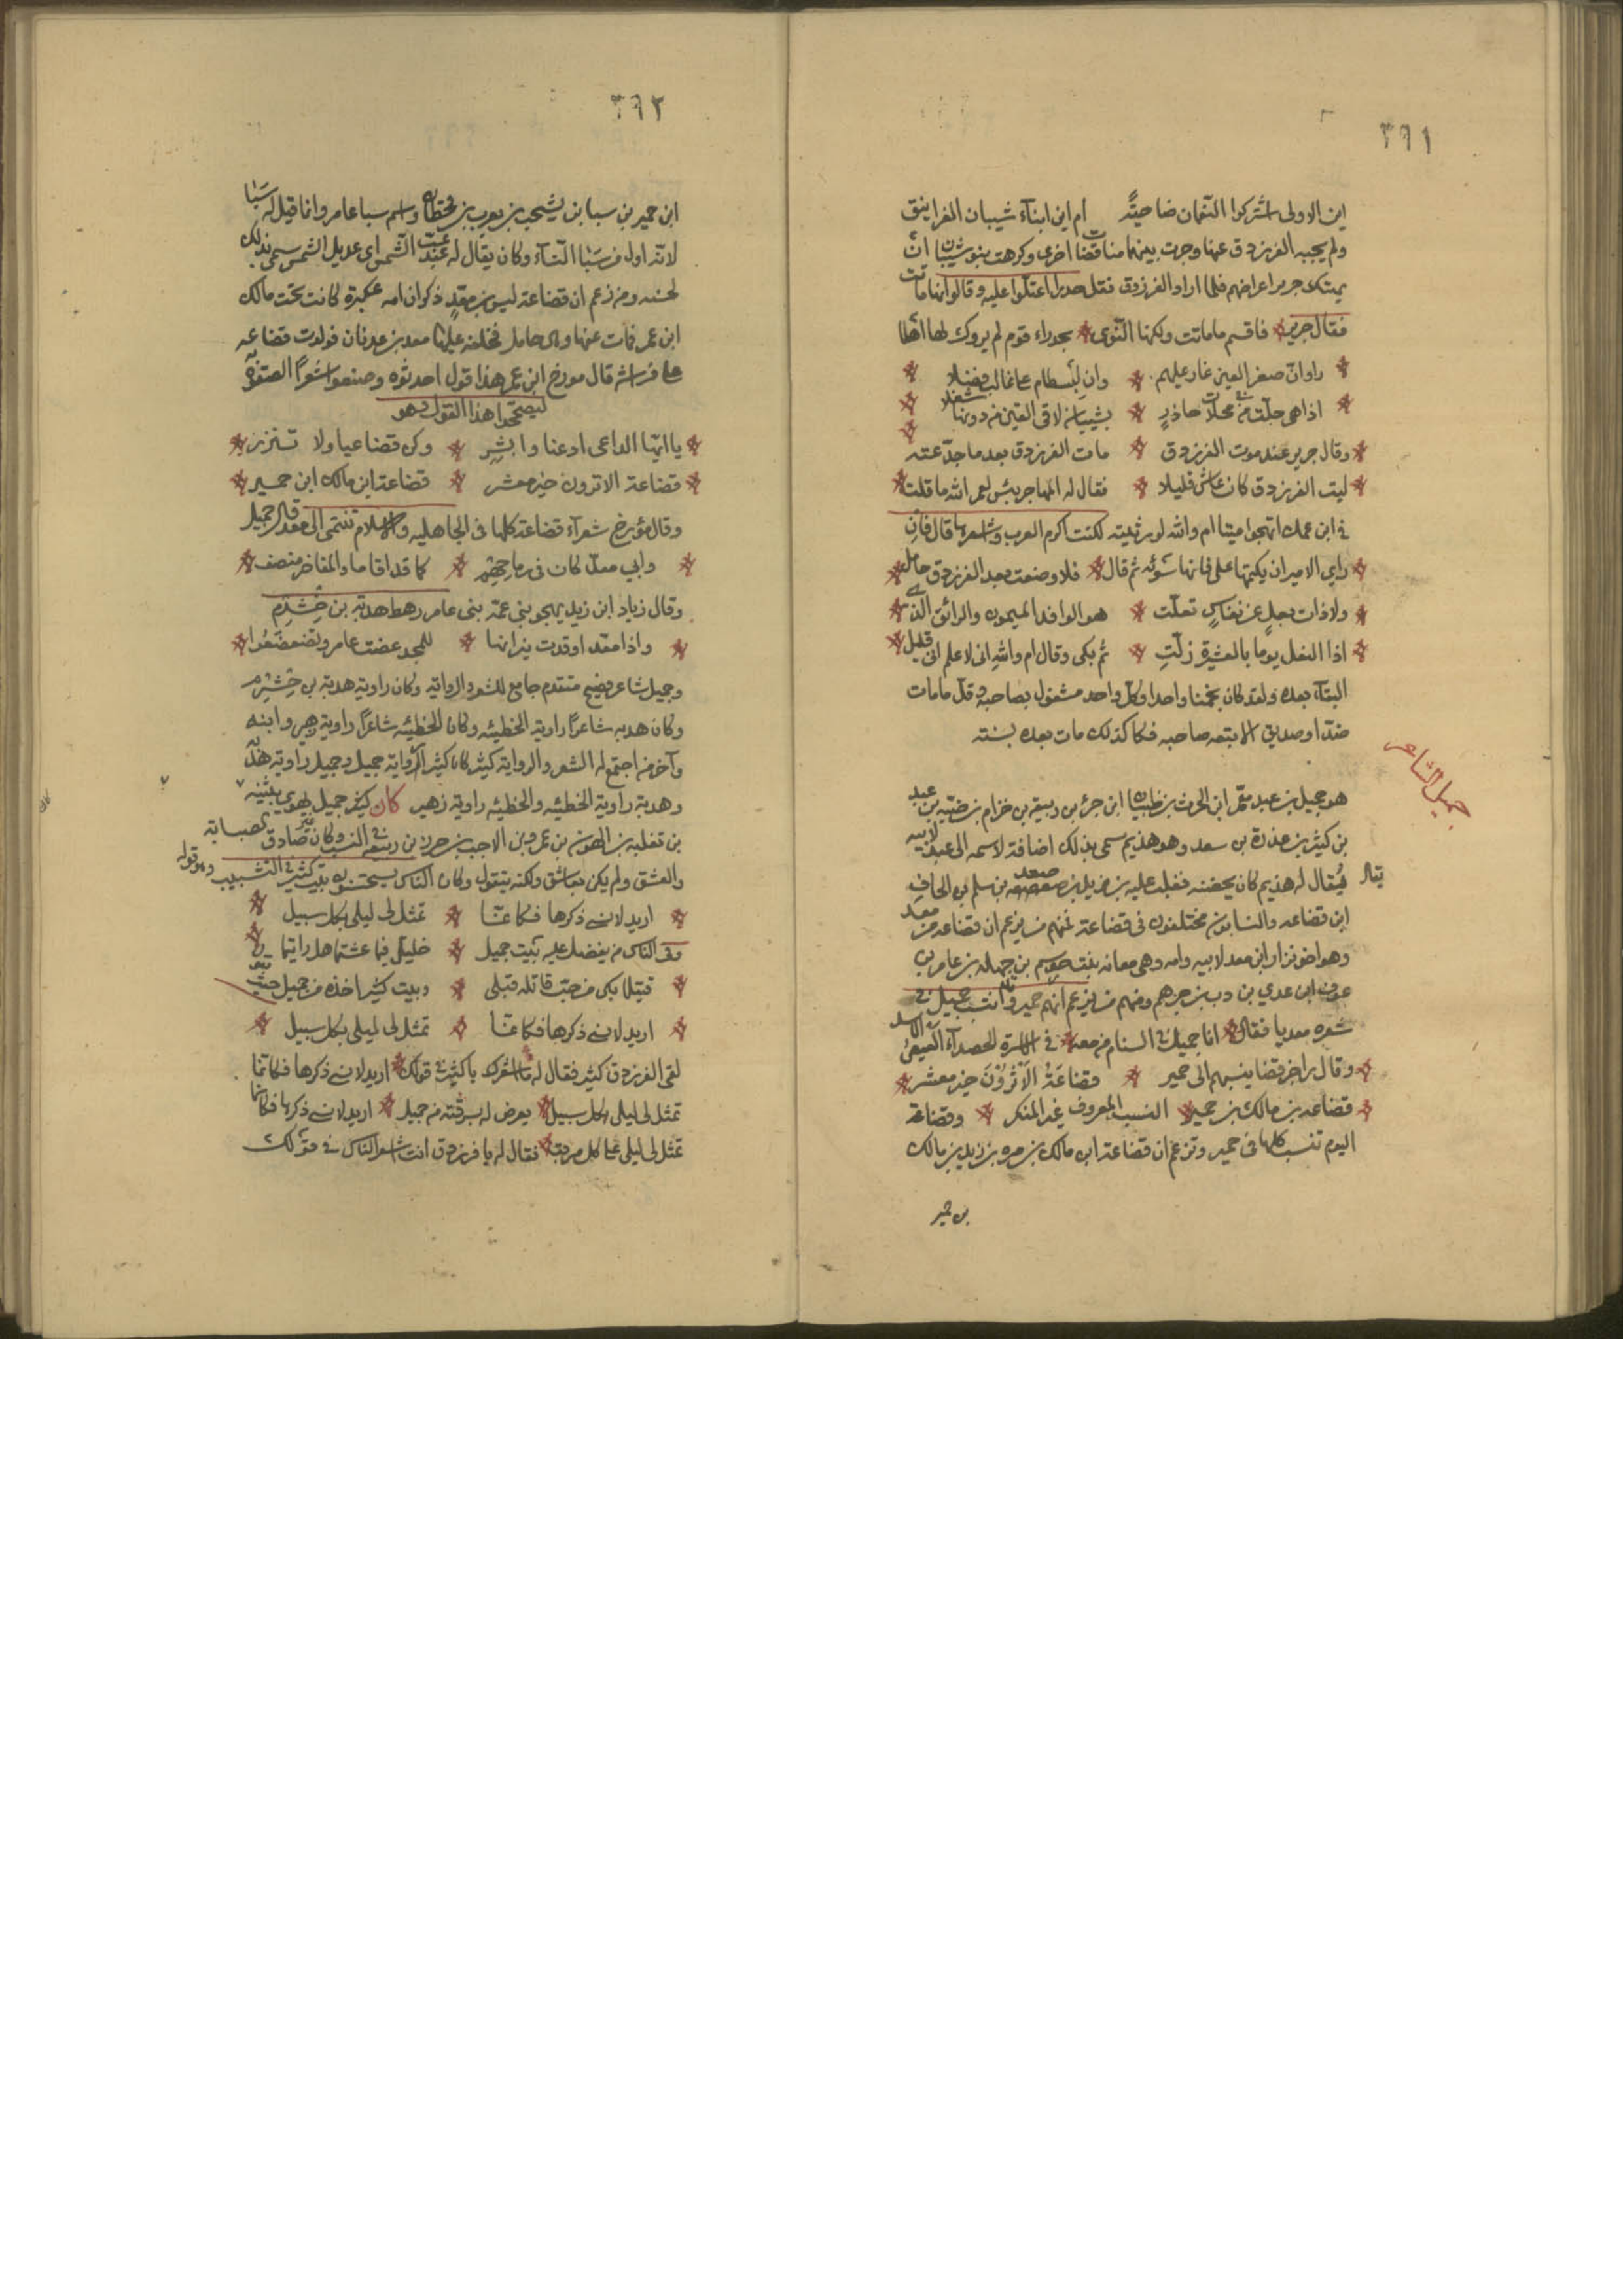 ٣٩١
اين الاولى اشركوا النعمان ضاحية ام اين ابناء شيبان الغرانيق
ولم يجبه الفرزدق عنها وجرت بينهما مناقضات اخرى وكرهت بنو شيبان ان
يهتك جرير اعراضهم فلما اراد الفرزدق نقل حدرا اعتلوا عليه وقالوا انها ماتت
فقال جرير فاقسم ما ماتت ولكنما التوى بحدراء قوم لم يروك لها اهلا
راوا ان صهر القين عار عليهم وان لبسطام على غالب فضلا
اذا هي حلت في محلات حاذر بشيبان لاقى القين من دونها شغلا
وقال جرير عند موت الفرزدق مات الفرزدق بعد ما جدعته
ليت الفرزدق كان عاش قليلا فقال له المهاجر بئس لعمر الله ما قلت
في ابن عمك اتهجو ميتا ام والله لو رثيته لكنت اكرم العرب واشعرها قال فان
راى الامير ان يكتمها على فانها سوئه ثم قال فلا وضعت بعد الفرزدق حامل
ولا ذات بعل عن نفاس تعلت هو الوافد الميمون والراتق الذي
اذا النعل يوما بالعشيرة زلت ثم بكى وقال ام والله انى لا علم انى قليل
البقآء بعده ولقد كان نجمنا واحدا وكل واحد مشغول بصاحبه وقل ما مات
ضد او صديق الا تبعه صاحبه فكا كذلك مات بعده بسنته
جميل الشاعر
هو جميل بن عبد الله بن معمر ابن الحرث بن ظبيان ابن جرئ بن ربيعة بن حزام بن ضبه بن عبد
بن كثير بن عذرة بن سعد وهو هذيم سمى بذلك اضافة لاسمه الى عبد لابيه
يقال له هذيم كان يحضنه فغلب عليه بن زيد بن بن سلم بن الحاف
ابن قضاعه والنسابون مختلفون فى قضاعة فمنهم من يزعم ان قضاعه من معد
وهو اخو نزار ابن معد لابيه وامه وهى معانه بنت جوسم بن جلهمه بن عامر بن
عوف ابن عدي بن دب بن جرهم ومنهم من يزعم انهم حمير وانتسب جميل في
شعره معديا فقال انا جميل في السنام من معد في الاسرة الحصدآء العيص الاسد
وقال راجز قضا ينسبهم الى حمير قضاعة الاثرون خير معشر
قضاعه بن مالك بن حمير النسب المعروف غير المنكر وقضاعة
اليوم تنسب كلها فى حمير وتزعم ان قضاعة ابن مالك بن مره بن زيد بن مالك
بن حمير
٣٩٢
ابن حمير بن سبا بن يشجب بن يعرب بن قحطان واسم سبا عامر وانما قيل له سبا
لانه اول من سبا النساء وكان يقال له عب الشمس اى عديل الشمس سمى بذلك
لحسنه ومن زعم ان قضاعة ليس بن معد ذكر ان امه عكبرة كانت تحت مالك
ابن عمر فمات عنها وهى حامل فخلف عليها معد بن عدنان فولدت قضاعه
على فراشه قال مورخ ابن عمر هذا قول احدثوه وصنعوا شعرا الصقوه
ليصححوا هذا القول وهو
يا ايها الداعى ادعنا وابشر وكن قضاعيا ولا تنزر
قضاعة الاثرون خير معشر قضاعة ابن مالك ابن حمير
وقال مؤرخ شعرآء قضاعة كلها فى الجاهليه والاسلام تنتمى الى معد قال جميل
وابي معد كان فى رماحهم كما قد افاما والمفاخر منصف
وقال زياد ابن زيد يهجو بنى عمه بنى عامر رهط هدبة بن خشرم
واذا معد اوقدت نيرانها للمجد عضت عامر وتضعضعوا
وجميل شاعر فصيح متقدم جامع للشعر والرواية وكان راوية هدبة بن خشرم
وكان هدبه شاعرا راوية الحطيئه وكان الحطيئه شاعرا راوية زهير وابنه
وآخر من اجتمع له الشعر والرواية كثير كان كثير الرواية جميل وجميل راوية هدبه
وهدبة راوية الحطيئه والحطيئه راوية زهير كان كثير جميل يهوى بثينه
بن ثعلبه بن الهون بن عمرو بن الاجب بن حرز بن ربيعه فى النسب وكان صادق الصبابة
والعشق ولم يكن بعاشق ولكنه يتقول وكان الناس يستحسنون بيت كثير في التشبيب وهو قوله
اريد لانسى ذكرها فكانما تمثل لى ليلى بكل سبيل
وفى الناس من يفضل عليه بيت جميل خليلى فيما عشتما هل رايتما
قتيلا بكى من حب قاتله قبلى وبيت كثير اخذه من جميل حيث
اريد لانسى ذكرها فكانما تمثل لى ليلى بكل سبيل
لقى الفرزدق كثير فقال له ما اشعرك يا كثير في قولك اريد لانسى ذكرها فكانما
تمثل لى ليلى بكل سبيل يعرض له بسرقته من جميل اريد لانسى ذكرها فكانما
تمثل لى ليلى على كل مرقب فقال له يا فرزدق انت اشعر الناس في قولك